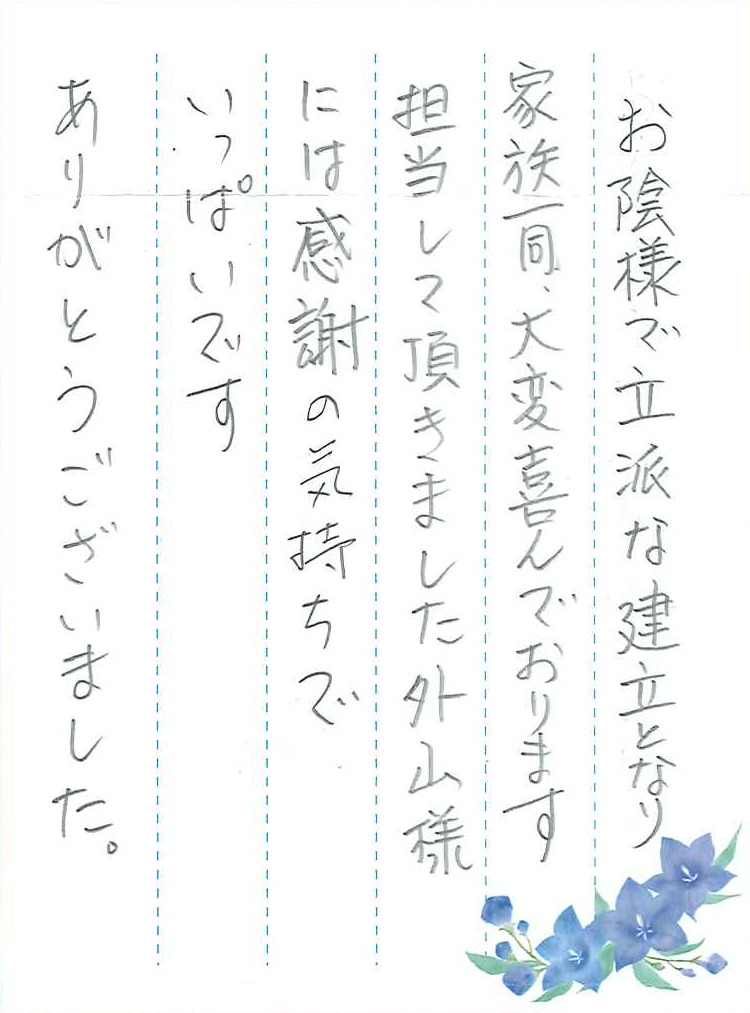 お陰様で立派な建立となり
家族一同、大変喜んでおります
担当して頂きました外山様
には感謝の気持ちで
いっぱいです
ありがとうございました。